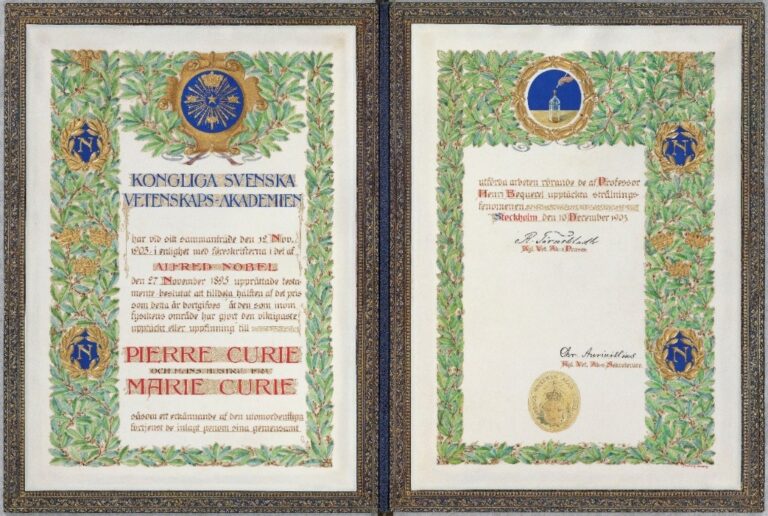 KONGLIGA SVENSKA
VETENSKAPS-AKADEMIEN
har vid sitt sammanträde den 12 Nov.
1903, i enlighet med föreskrifterna i det af
ALFRED NOBEL
den 27 November 1895 upprättade testa-
mente beslutat att tilldela hälften af det pris
som detta år bortgifves åt den som inom
fysikens område har gjort den viktigaste
upptäckt eller uppfinning till
PIERRE CURIE
OCH HANS HUSTRU FRU
MARIE CURIE
såsom ett erkännande af den utomordentliga
förtjenst de inlagt genom sina gemensamt
utförda arbeten rörande de af Professor
Henri Becquerel upptäckta strålnings-
fenomenen
Stockholm den 10 December 1903.
R. Törnebladh
Kgl. Vet. Ak:s Præses.
Chr. Aurivillius
Kgl. Vet. Ak:s Sekreterare.
N
N
N
N